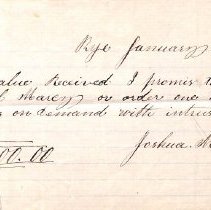 Rye January
alue Received I promis t
Marcy or order one
on demand with intrus
00.00
Joshua M